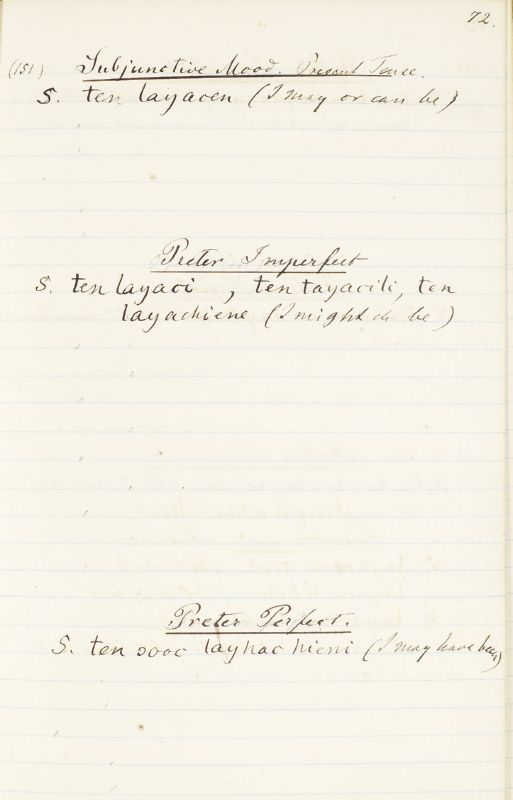 72.
(151.) Subjunctive Mood. Present Tense.
S. ten layacen (I may or can be)
Preter Imperfect
S. ten layaci , ten tayacili, ten
layachiene (I might be)
Preter Perfect.
S. ten ɔooc layhac hieni (I may have been)